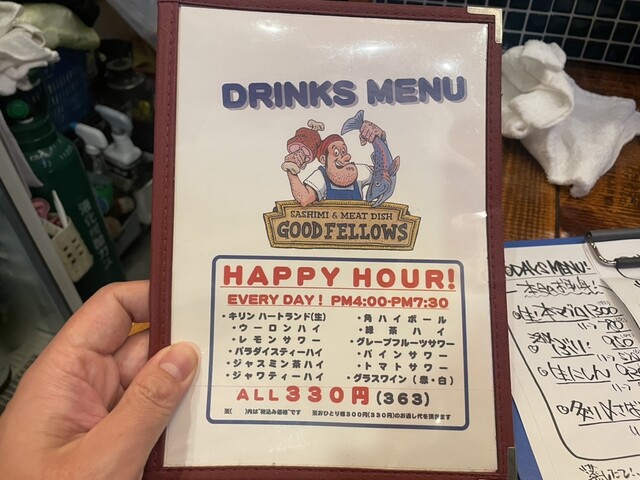 DRINKS MENU
SASHIMI & MEAT DISH
GOOD FELLOWS
HAPPY HOUR!
EVERY DAY! PM4:00-PM7:30
・キリン ハートランド(生)
・ウーロンハイ
・レモンサワー
・パラダイスティーハイ
・ジャスミン茶ハイ
・ジャワティーハイ
・角ハイボール
・緑茶ハイ
・グレープフルーツサワー
・パインサワー
・トマトサワー
・グラスワイン(赤・白)
ALL 330円(363)
※( )内は"税込み価格"です ※おひとり様300円(330円)のお通し代を頂きます
MENU!